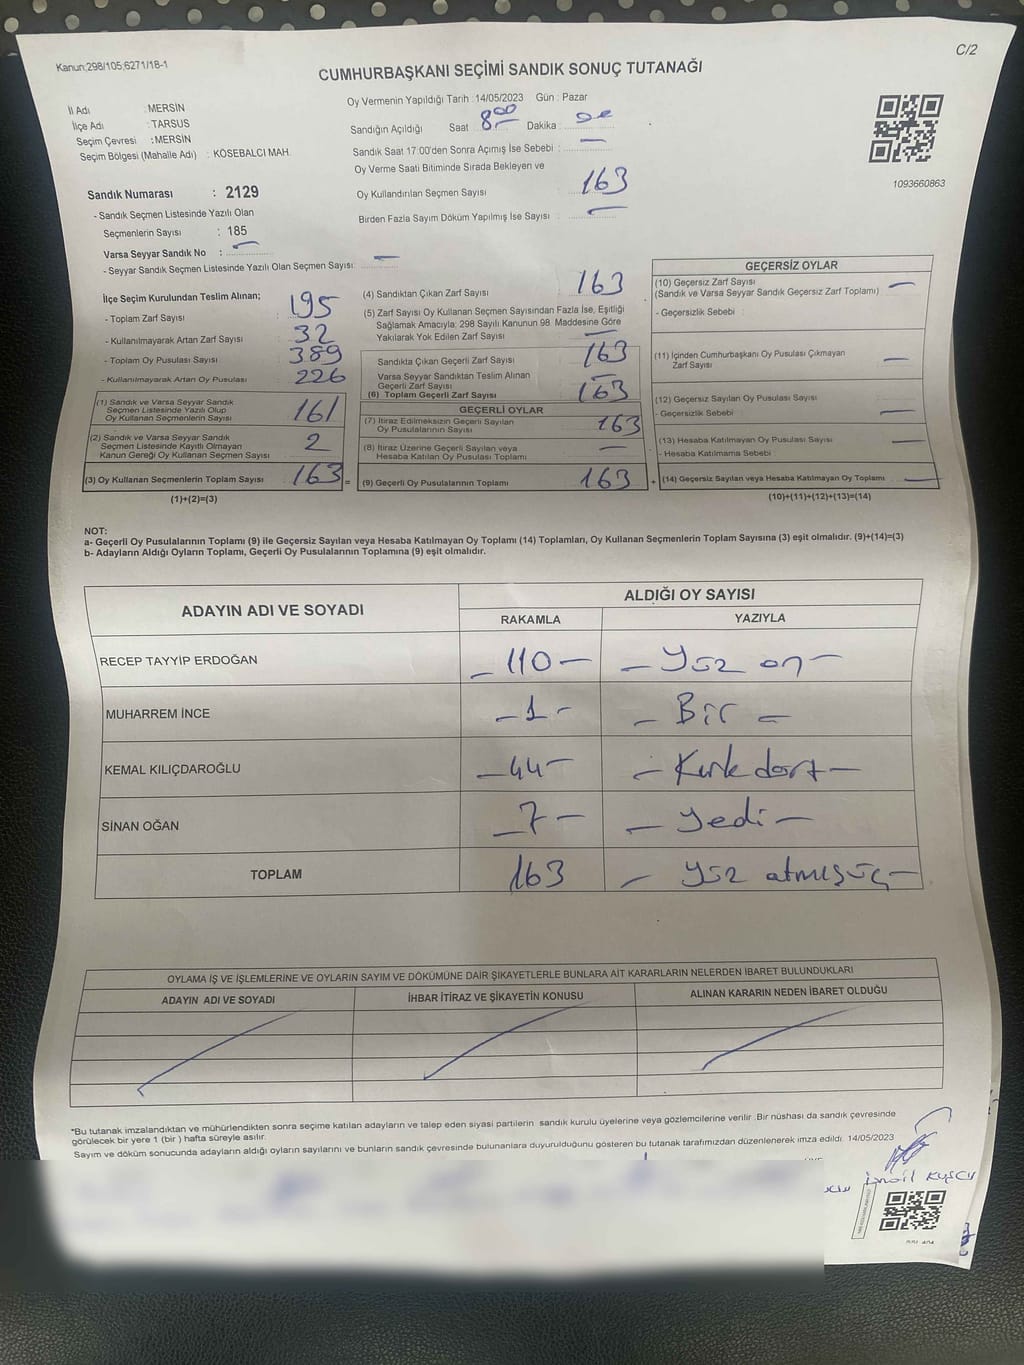 C/2
Kanun;298/105;6271/18-1
CUMHURBAŞKANI SEÇİMİ SANDIK SONUÇ TUTANAĞI
İl Adı : MERSİN
İlçe Adı : TARSUS
Seçim Çevresi : MERSİN
Seçim Bölgesi (Mahalle Adı) : KÖSEBALCI MAH.
Oy Vermenin Yapıldığı Tarih : 14/05/2023 Gün : Pazar
Sandığın Açıldığı Saat : 8 00 Dakika :
Sandık Saat 17:00'den Sonra Açımış İse Sebebi : —
Oy Verme Saati Bitiminde Sırada Bekleyen ve
Oy Kullandırılan Seçmen Sayısı 163
Birden Fazla Sayım Döküm Yapılmış İse Sayısı : —
1093660863
Sandık Numarası : 2129
- Sandık Seçmen Listesinde Yazılı Olan
Seçmenlerin Sayısı : 185
Varsa Seyyar Sandık No : —
- Seyyar Sandık Seçmen Listesinde Yazılı Olan Seçmen Sayısı: —
İlçe Seçim Kurulundan Teslim Alınan;
- Toplam Zarf Sayısı 195
- Kullanılmayarak Artan Zarf Sayısı 32
- Toplam Oy Pusulası Sayısı 389
- Kullanılmayarak Artan Oy Pusulası 226
(1) Sandık ve Varsa Seyyar Sandık
Seçmen Listesinde Yazılı Olup
Oy Kullanan Seçmenlerin Sayısı 161
(2) Sandık ve Varsa Seyyar Sandık
Seçmen Listesinde Kayıtlı Olmayan
Kanun Gereği Oy Kullanan Seçmen Sayısı 2
(3) Oy Kullanan Seçmenlerin Toplam Sayısı 163 =
(1)+(2)=(3)
(4) Sandıktan Çıkan Zarf Sayısı 163
(5) Zarf Sayısı Oy Kullanan Seçmen Sayısından Fazla İse, Eşitliği
Sağlamak Amacıyla; 298 Sayılı Kanunun 98. Maddesine Göre
Yakılarak Yok Edilen Zarf Sayısı —
Sandıkta Çıkan Geçerli Zarf Sayısı 163
Varsa Seyyar Sandıktan Teslim Alınan
Geçerli Zarf Sayısı —
(6) Toplam Geçerli Zarf Sayısı 163
GEÇERLİ OYLAR
(7) İtiraz Edilmeksizin Geçerli Sayılan
Oy Pusulalarının Sayısı 163
(8) İtiraz Üzerine Geçerli Sayılan veya
Hesaba Katılan Oy Pusulası Toplamı —
(9) Geçerli Oy Pusulalarının Toplamı 163 +
GEÇERSİZ OYLAR
(10) Geçersiz Zarf Sayısı
(Sandık ve Varsa Seyyar Sandık Geçersiz Zarf Toplamı) —
- Geçersizlik Sebebi :
(11) İçinden Cumhurbaşkanı Oy Pusulası Çıkmayan
Zarf Sayısı —
(12) Geçersiz Sayılan Oy Pusulası Sayısı
- Geçersizlik Sebebi : —
(13) Hesaba Katılmayan Oy Pusulası Sayısı —
- Hesaba Katılmama Sebebi :
(14) Geçersiz Sayılan veya Hesaba Katılmayan Oy Toplamı —
(10)+(11)+(12)+(13)=(14)
NOT:
a- Geçerli Oy Pusulalarının Toplamı (9) ile Geçersiz Sayılan veya Hesaba Katılmayan Oy Toplamı (14) Toplamları, Oy Kullanan Seçmenlerin Toplam Sayısına (3) eşit olmalıdır. (9)+(14)=(3)
b- Adayların Aldığı Oyların Toplamı, Geçerli Oy Pusulalarının Toplamına (9) eşit olmalıdır.
ADAYIN ADI VE SOYADI ALDIĞI OY SAYISI
RAKAMLA YAZIYLA
RECEP TAYYİP ERDOĞAN — 110 — — Yüz on —
MUHARREM İNCE — 1 — — Bir —
KEMAL KILIÇDAROĞLU — 44 — — Kırk dört —
SİNAN OĞAN — 7 — — Yedi —
TOPLAM 163 — Yüz atmışüç —
OYLAMA İŞ VE İŞLEMLERİNE VE OYLARIN SAYIM VE DÖKÜMÜNE DAİR ŞİKAYETLERLE BUNLARA AİT KARARLARIN NELERDEN İBARET BULUNDUKLARI
ADAYIN ADI VE SOYADI İHBAR İTİRAZ VE ŞİKAYETİN KONUSU ALINAN KARARIN NEDEN İBARET OLDUĞU
*Bu tutanak imzalandıktan ve mühürlendikten sonra seçime katılan adayların ve talep eden siyasi partilerin sandık kurulu üyelerine veya gözlemcilerine verilir .Bir nüshası da sandık çevresinde
görülecek bir yere 1 (bir ) hafta süreyle asılır.
Sayım ve döküm sonucunda adayların aldığı oyların sayılarını ve bunların sandık çevresinde bulunanlara duyurulduğunu gösteren bu tutanak tarafımızdan düzenlenerek imza edildi. 14/05/2023
İsmail Kuşcu